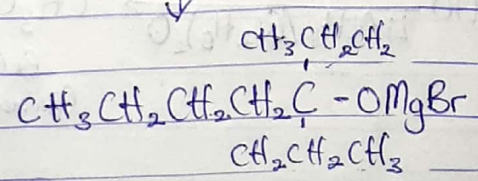 CH₃CH₂CH₂
CH₃CH₂CH₂CH₂C-OMgBr
CH₂CH₂CH₃